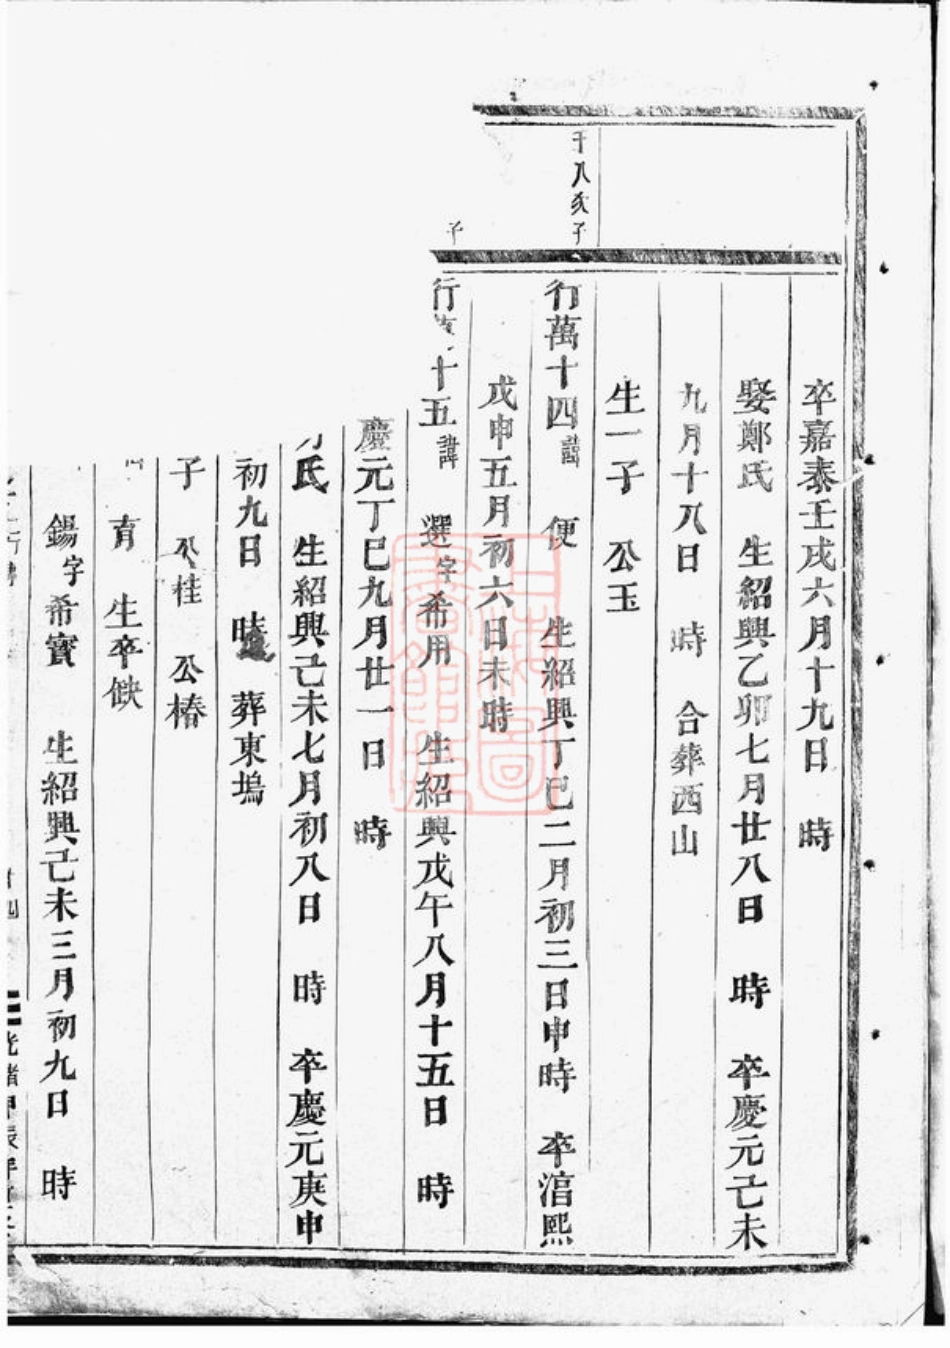 卒嘉泰壬戌六月十九日　時
娶鄭氏　生紹興乙卯七月廿八日　時　卒慶元己未
九月十八日　時　合葬西山
生一子　公玉
子
行萬十四諱　便　生紹興丁巳二月初三日申時　卒淳熙
戊申五月初六日未時
子
行　十五諱　選字希用　生紹興戊午八月十五日　時
慶元丁巳九月廿一日　時
氏　生紹興己未七月初八日　時　卒慶元庚申
初九日　時　葬東塢
子　公桂　公椿
育　生卒缺
錫字希實　生紹興己未三月初九日　時